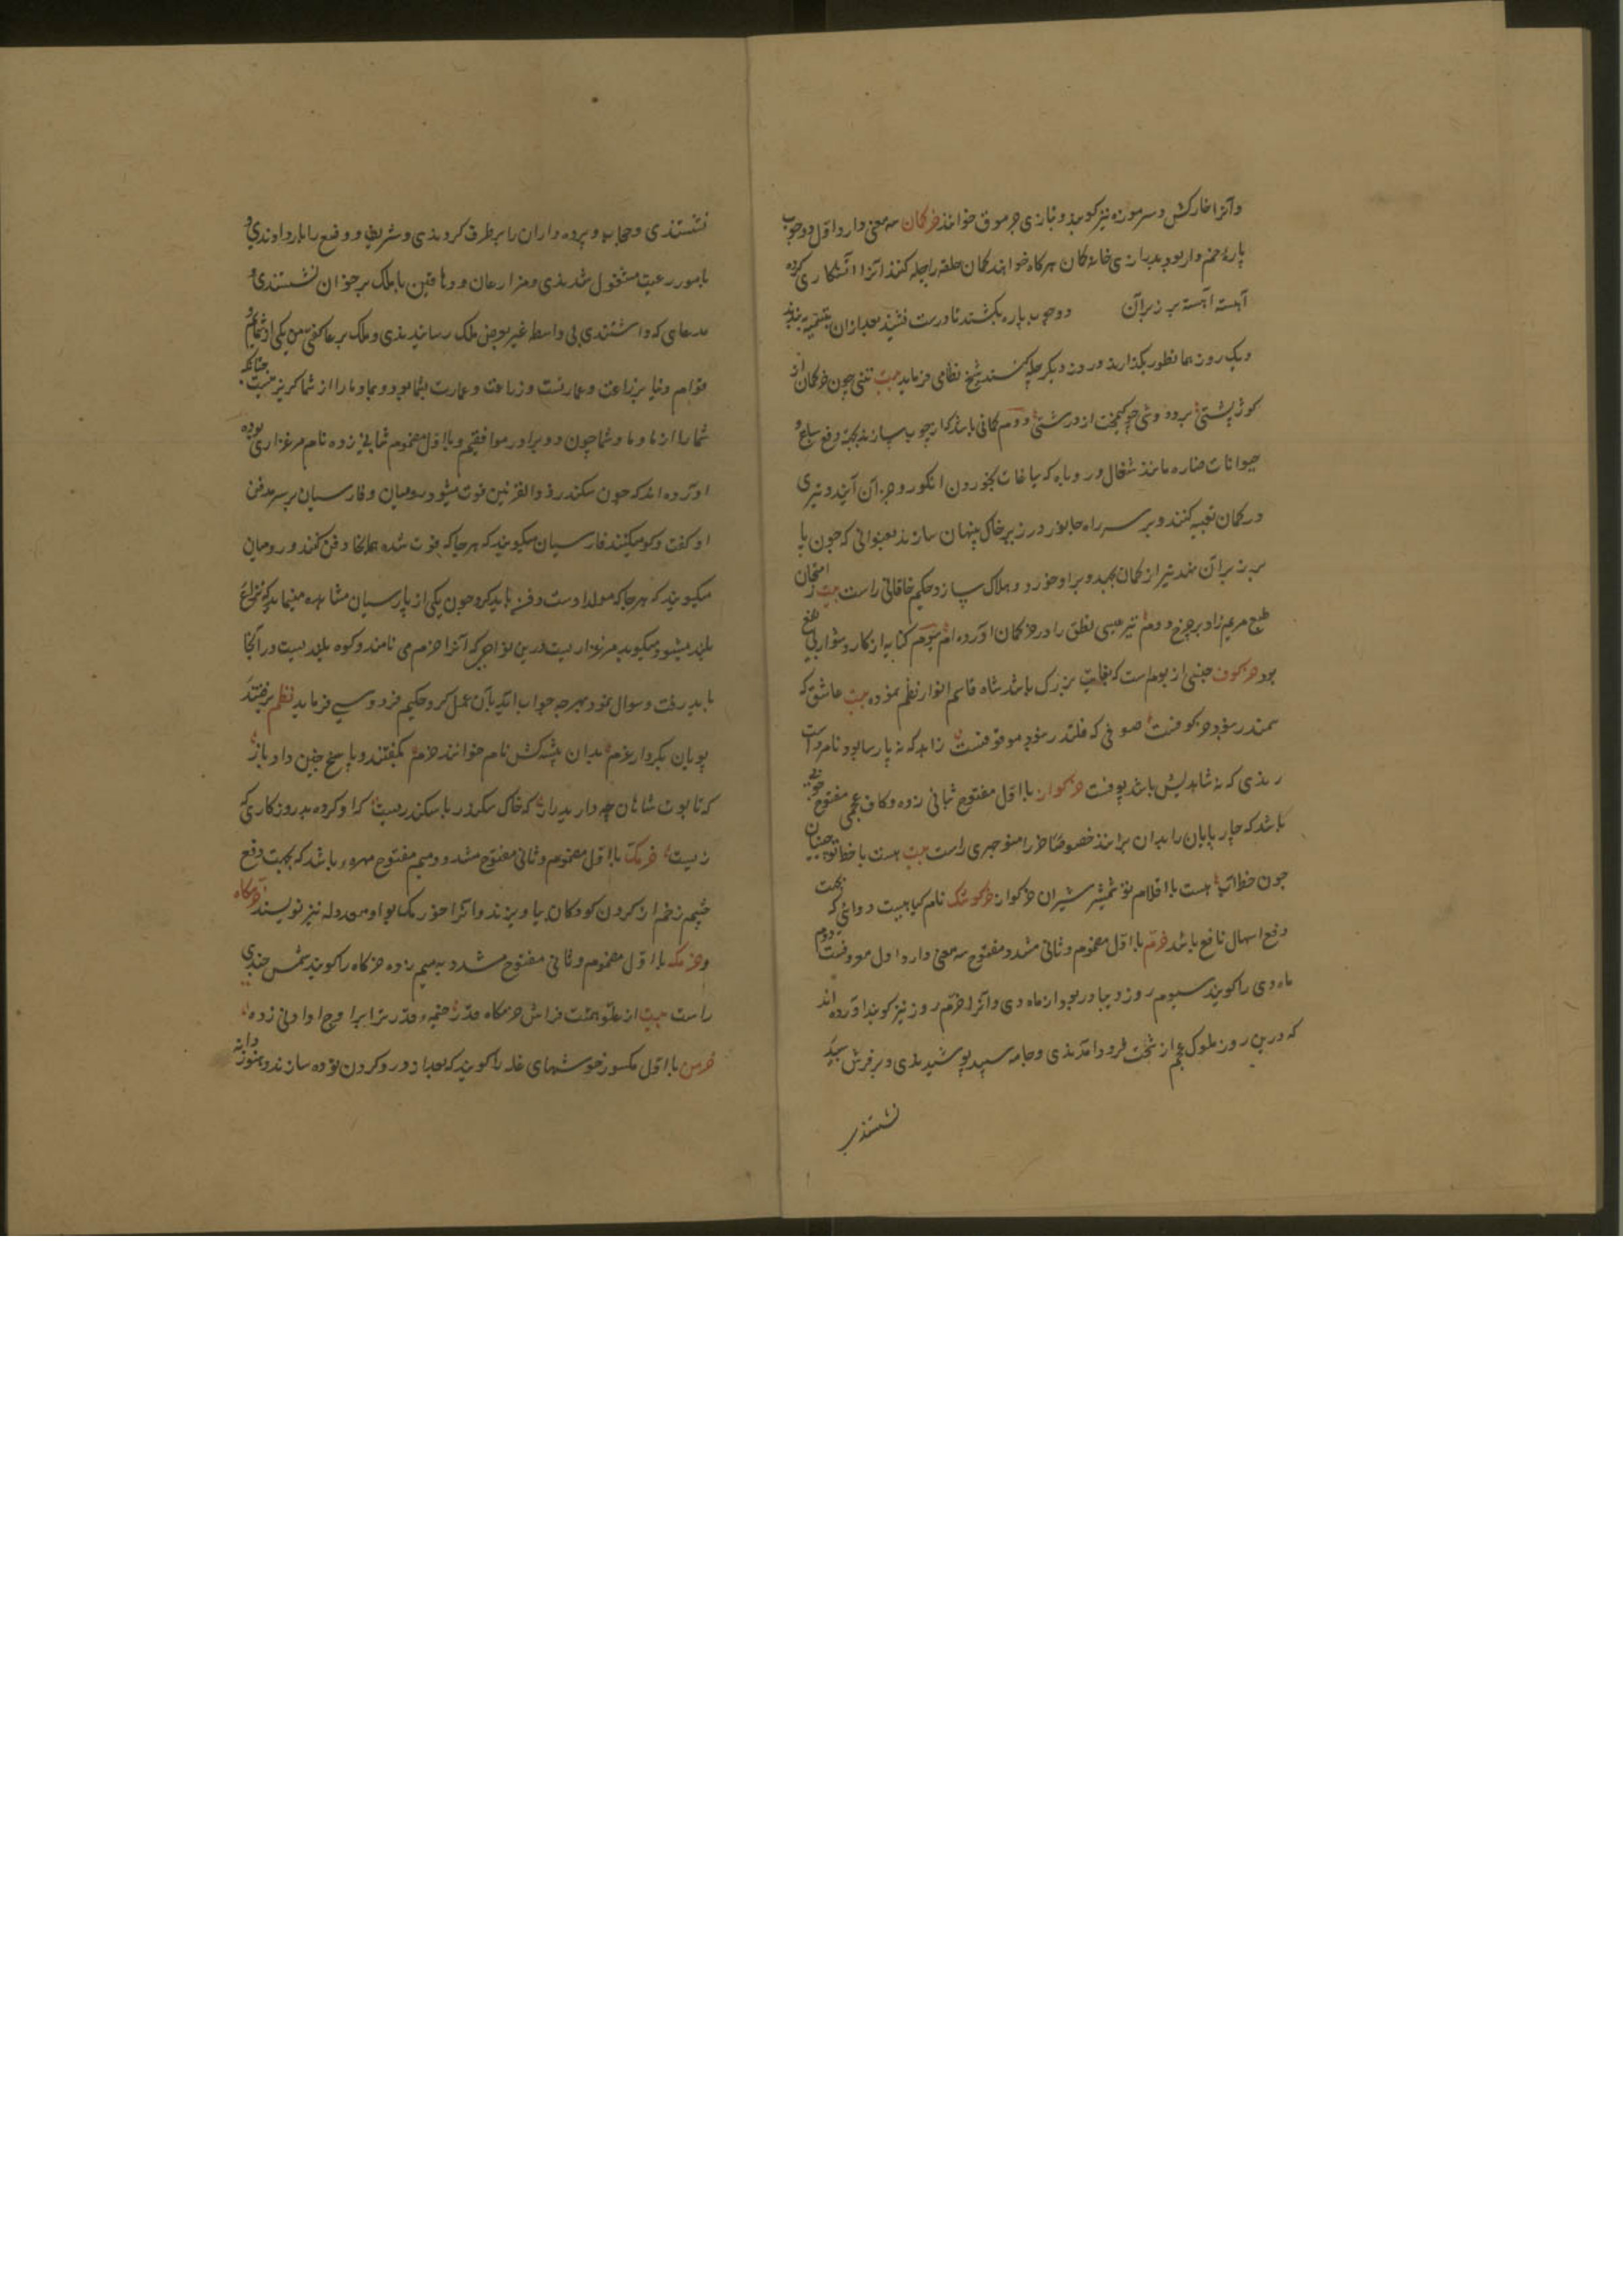 وآنرا خارکش و سرموزه نیز کویند و بتازی جرموق خوانند خرکمان سه معنی دارد اول دو چوب
پارهٔ خم دار بود بدرازی خانه کمان هرکاه خواهند کمان حلقه را چله کنند آنرا آتشکاری کرده
آهسته آهسته بر زبر آن دو چوب پاره بکشند تا درست نشیند بعد ازان به تسمیه بندند
ویک روز همانطور بکذارند و روز دیکر چله کنند شیخ نظامی فرماید بیت تنی چون خرکمان از
کوژ پشتی برو دوشی چو کیمخت از درشتی دوم کمانی باشد که از چوب سازند بجهة دفع سباع و
حیوانات ضاره مانند شغال و روباه که بباغات بخوردن انکور و جز آن آیند و تیری
در کمان تعبیه کنند و بر سر راه جانور در زیر خاک پنهان سازند بعنوانی که چون پا
بر زبر آن نهد تیر از کمان بجهد و بر او خورد و هلاک سازد حکیم خاقانی راست بیت ز امتحان
طبع مریم زاد بر چرخ دوم تیر عیسی نطق را در خرکمان آورده ام سوم کنایه از کار دشوار بی نفع
بود خرکوف جنسی از بوم است که بغایت بزرک باشد شاه قاسم انوار نظم نموده بیت عاشق که
سمندر نبود خرکوفست صوفی که قلندر نبود موقوفست زاهد که نه پارسا بود نامرد است
رندی که نه شاهدیش باشد پوفست خرکواز با اول مفتوح بثانی زده و کاف عجمی مفتوح چوبی
باشد که چارپایان را بدان برانند خصوصا خر را منوچهری راست بیت هست با خط تو خط چینیان
چون خط آب هست با اقلام تو شمشیر شیران خرکواز خرکوشک نام کیاهیست دوائی که بجهت
دفع اسهال نافع باشد خرم با اول مضموم و ثانی مشدد مفتوح سه معنی دارد اول معروفست دوم
ماه دی را کویند سیوم روز دیبادر بود از ماه دی و آنرا خرم روز نیز کویند آورده اند
که درین روز ملوک عجم از تخت فرود آمدندی و جامه سپید پوشیدندی و بر فرش سپید
نشستندی
نشستندی و حجاب و پرده داران را برطرف کردندی و شریف و وضیع را بار دادندی و
بامور رعیت مشغول شدندی و مزارعان و دهاقین با ملک بر خوان نشستندی و
مدعای که داشتندی بی واسطه غیر بعرض ملک رسانیدندی و ملک برعایا کفتی من یکی از شمایم و
قوام دنیا بزراعت و عمارتست و زراعت و عمارت بشما بود و ما را از شما کریز نیست چنانکه
شما را از ما و ما و شما چون دو برادر موافقیم و با اول مضموم بثانی زده نام مرغزاری بوده
آورده اند که چون سکندر ذوالقرنین فوت میشود رومیان و فارسیان بر سر مدفن
او کفت و کو میکنند فارسیان میکویند که هرجا که فوت شده همانجا دفن کنند و رومیان
میکویند که هرجا که مولد اوست دفن باید کرد چون یکی از پارسیان مشاهده مینماید که نزاع
بلند میشود میکوید مرغزاریست درین نواحی که آنرا خرم می نامند و کوه بلندیست در آنجا
باید رفت و سوال نمود هرچه جواب آید بآن عمل کرد حکیم فردوسی فرماید نظم برفتند
پویان بکردار غرم بدان بیشه کش نام خوانند خرم بکفتند و پاسخ چنین داد باز
که تابوت شاهان چه دارید راز که خاک سکندر باسکندریست کرا و کرده بد روزکاری که
زیست خرمک با اول مضموم و ثانی مفتوح مشدد و میم مفتوح مهره باشد که بجهت دفع
چشم زخم از کردن کودکان بیاویزند و آنرا خورمک بواو معدوله نیز نویسند خرمکاه
و خرمکه با اول مضموم و ثانی مفتوح مشدد به میم زده خرکاه را کویند شمس جندی
راست بیت از علو همت فراش خرمکاه قدر خیمه قدر ترا بر اوج او ادنی زده
خرمن با اول مکسور خوشهای غله را کویند که بعد از درو کردن توده سازند و هنوز دانه